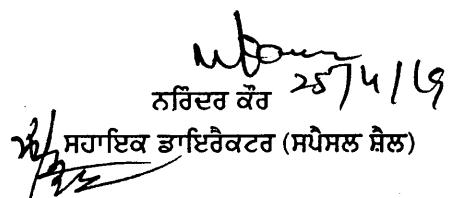 25/4/19
ਨਰਿੰਦਰ ਕੌਰ
ਸਹਾਇਕ ਡਾਇਰੈਕਟਰ (ਸਪੈਸਲ ਸ਼ੈਲ)